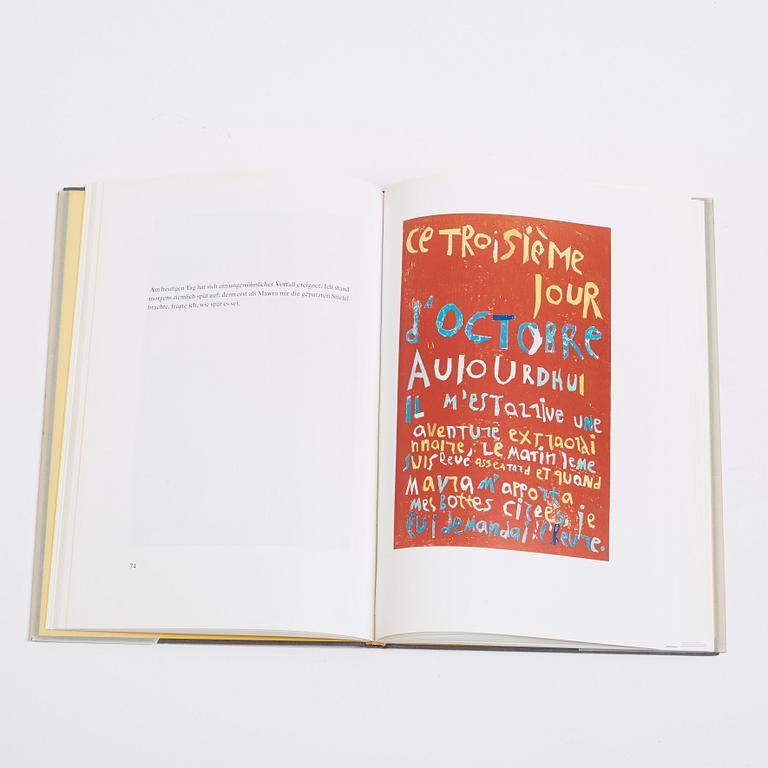 Am heutigen Tag hat sich ein ungewöhnlicher Vorfall ereignet. Ich stand
morgens ziemlich spät auf; denn erst als Mawra mir die geputzten Stiefel
brachte, fragte ich, wie spät es sei.
74
CE TROISIÈME
JOUR
d'OCTOBRE
AUJOURDHUI
IL M'EST ARRIVE UNE
AVENTURE EXTRAORDI
NNAIRE, LE MATIN JEME
SUIS LEVÉ ASSE TARD ET QUAND
MAVRA M'APPORTA
MES BOTTES CIREES, je
LUI dEMANdAI L'HEURE.